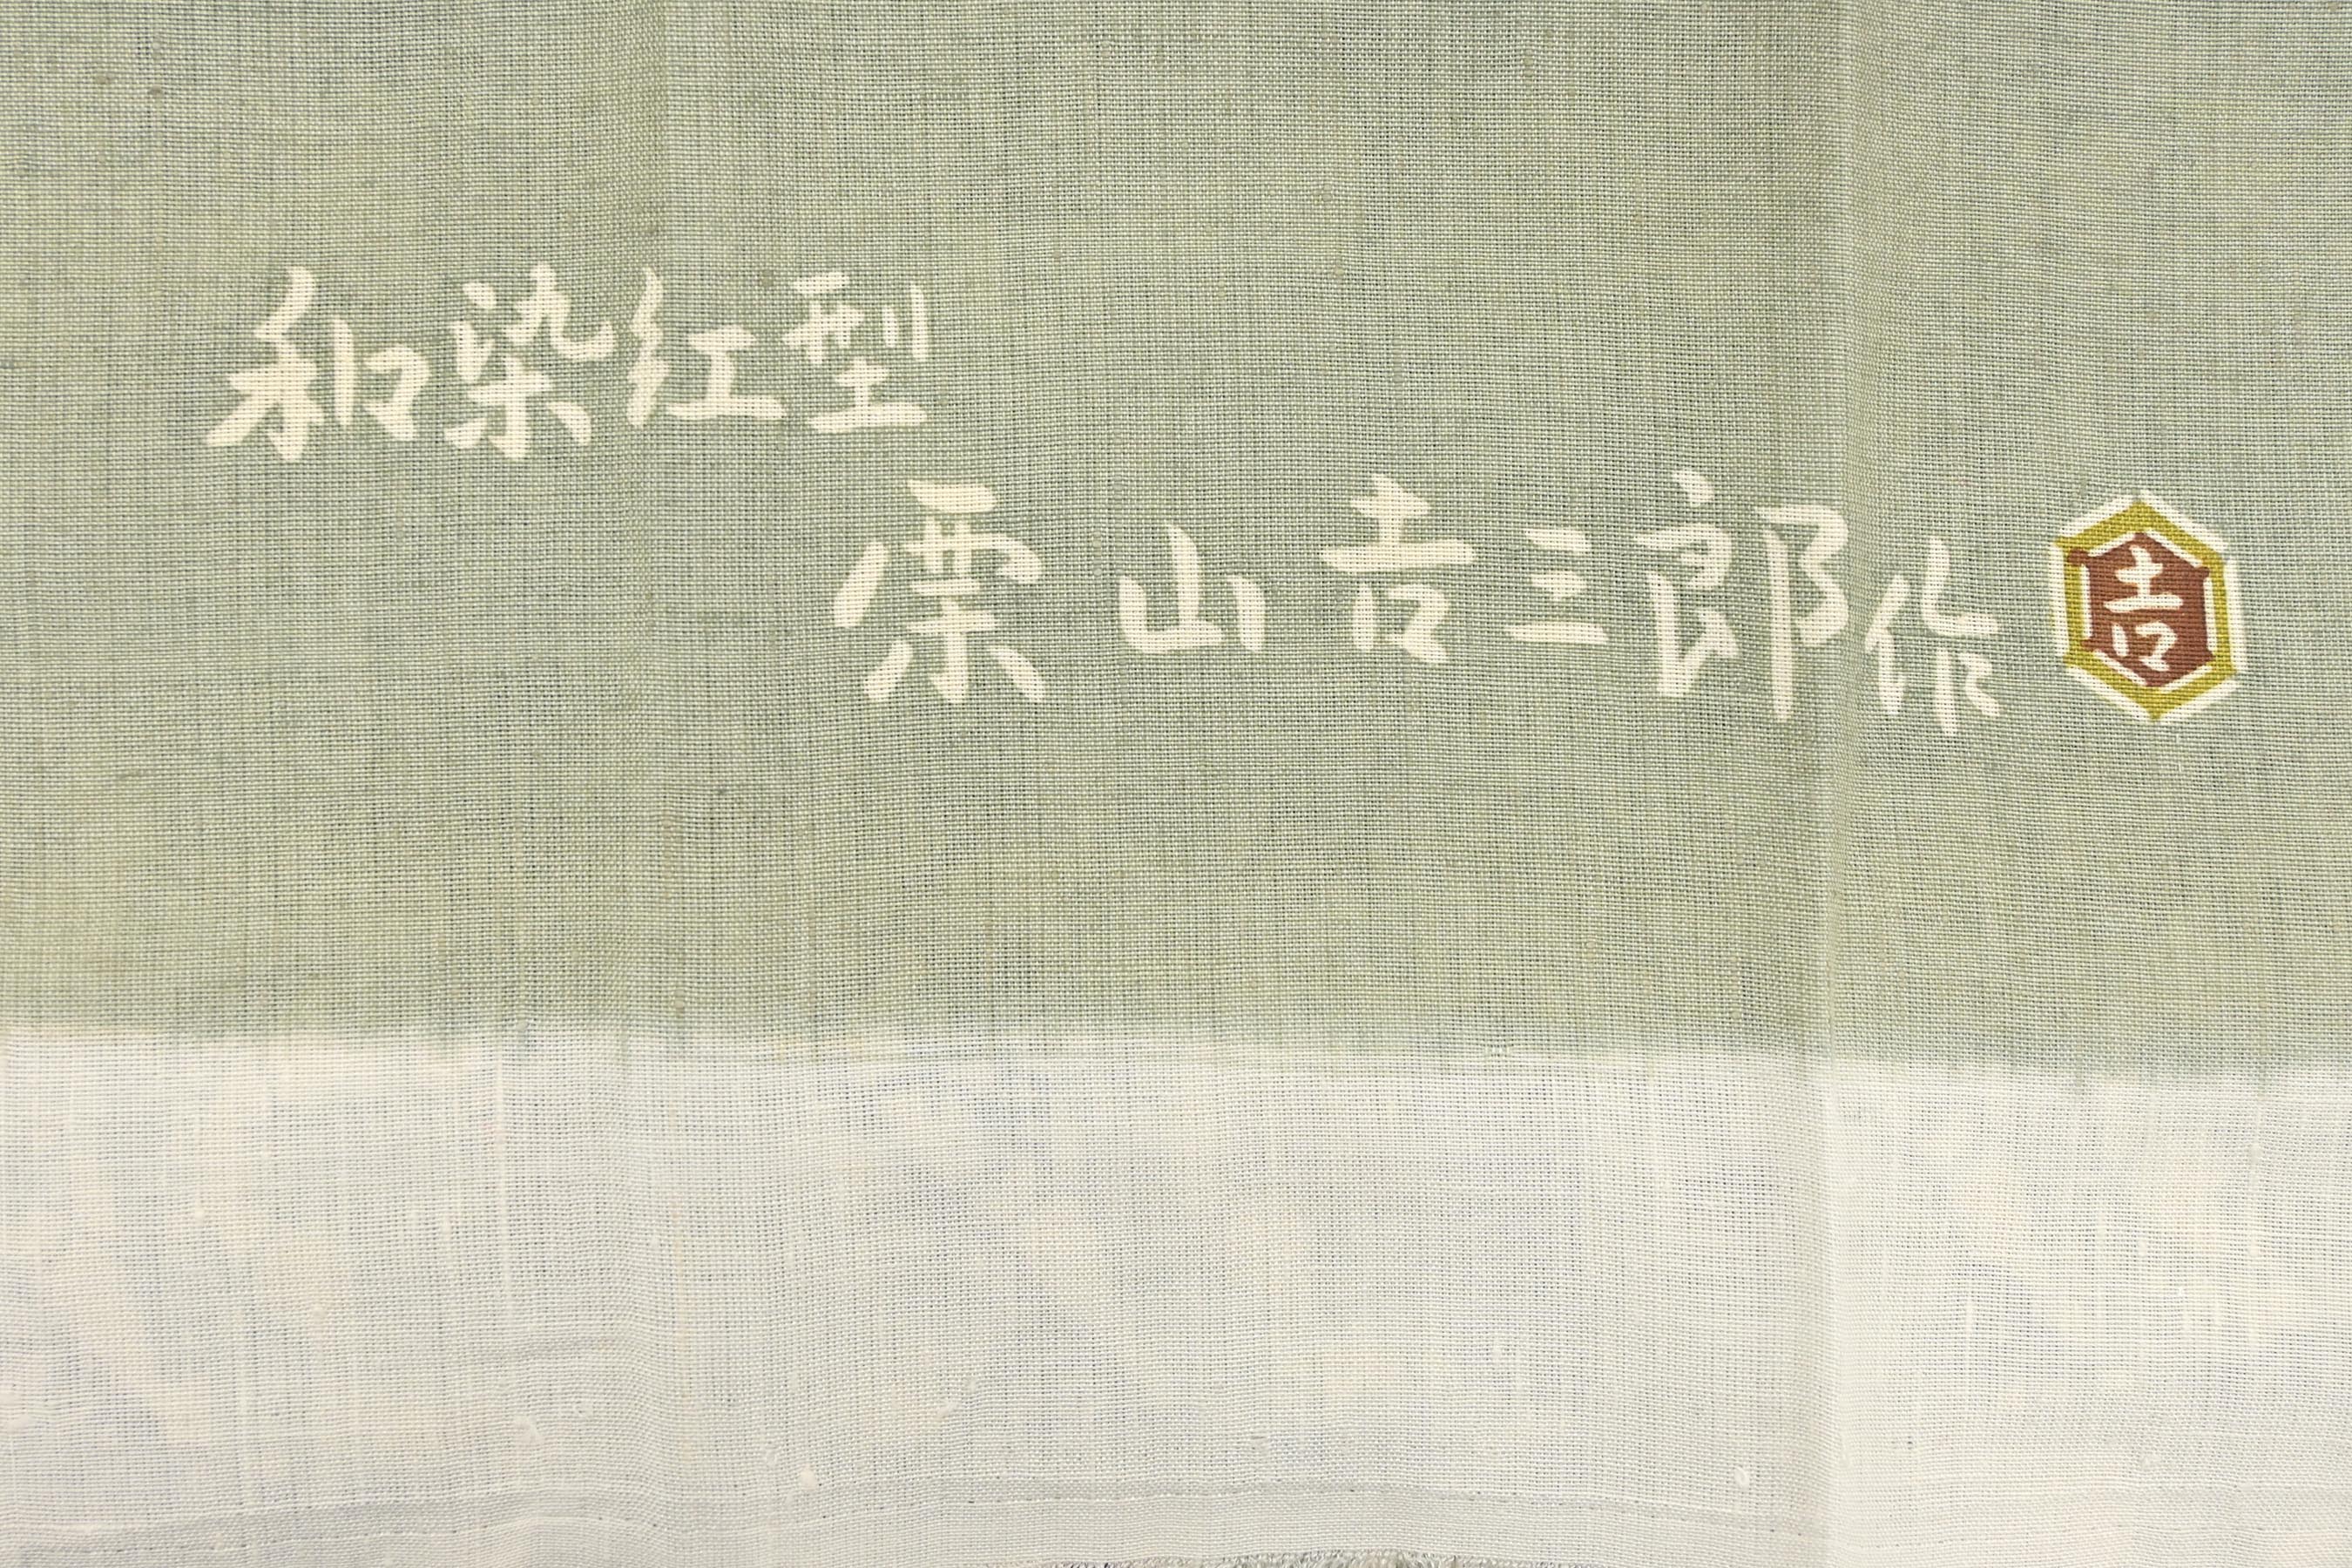 和染紅型
栗山吉三郎作 吉